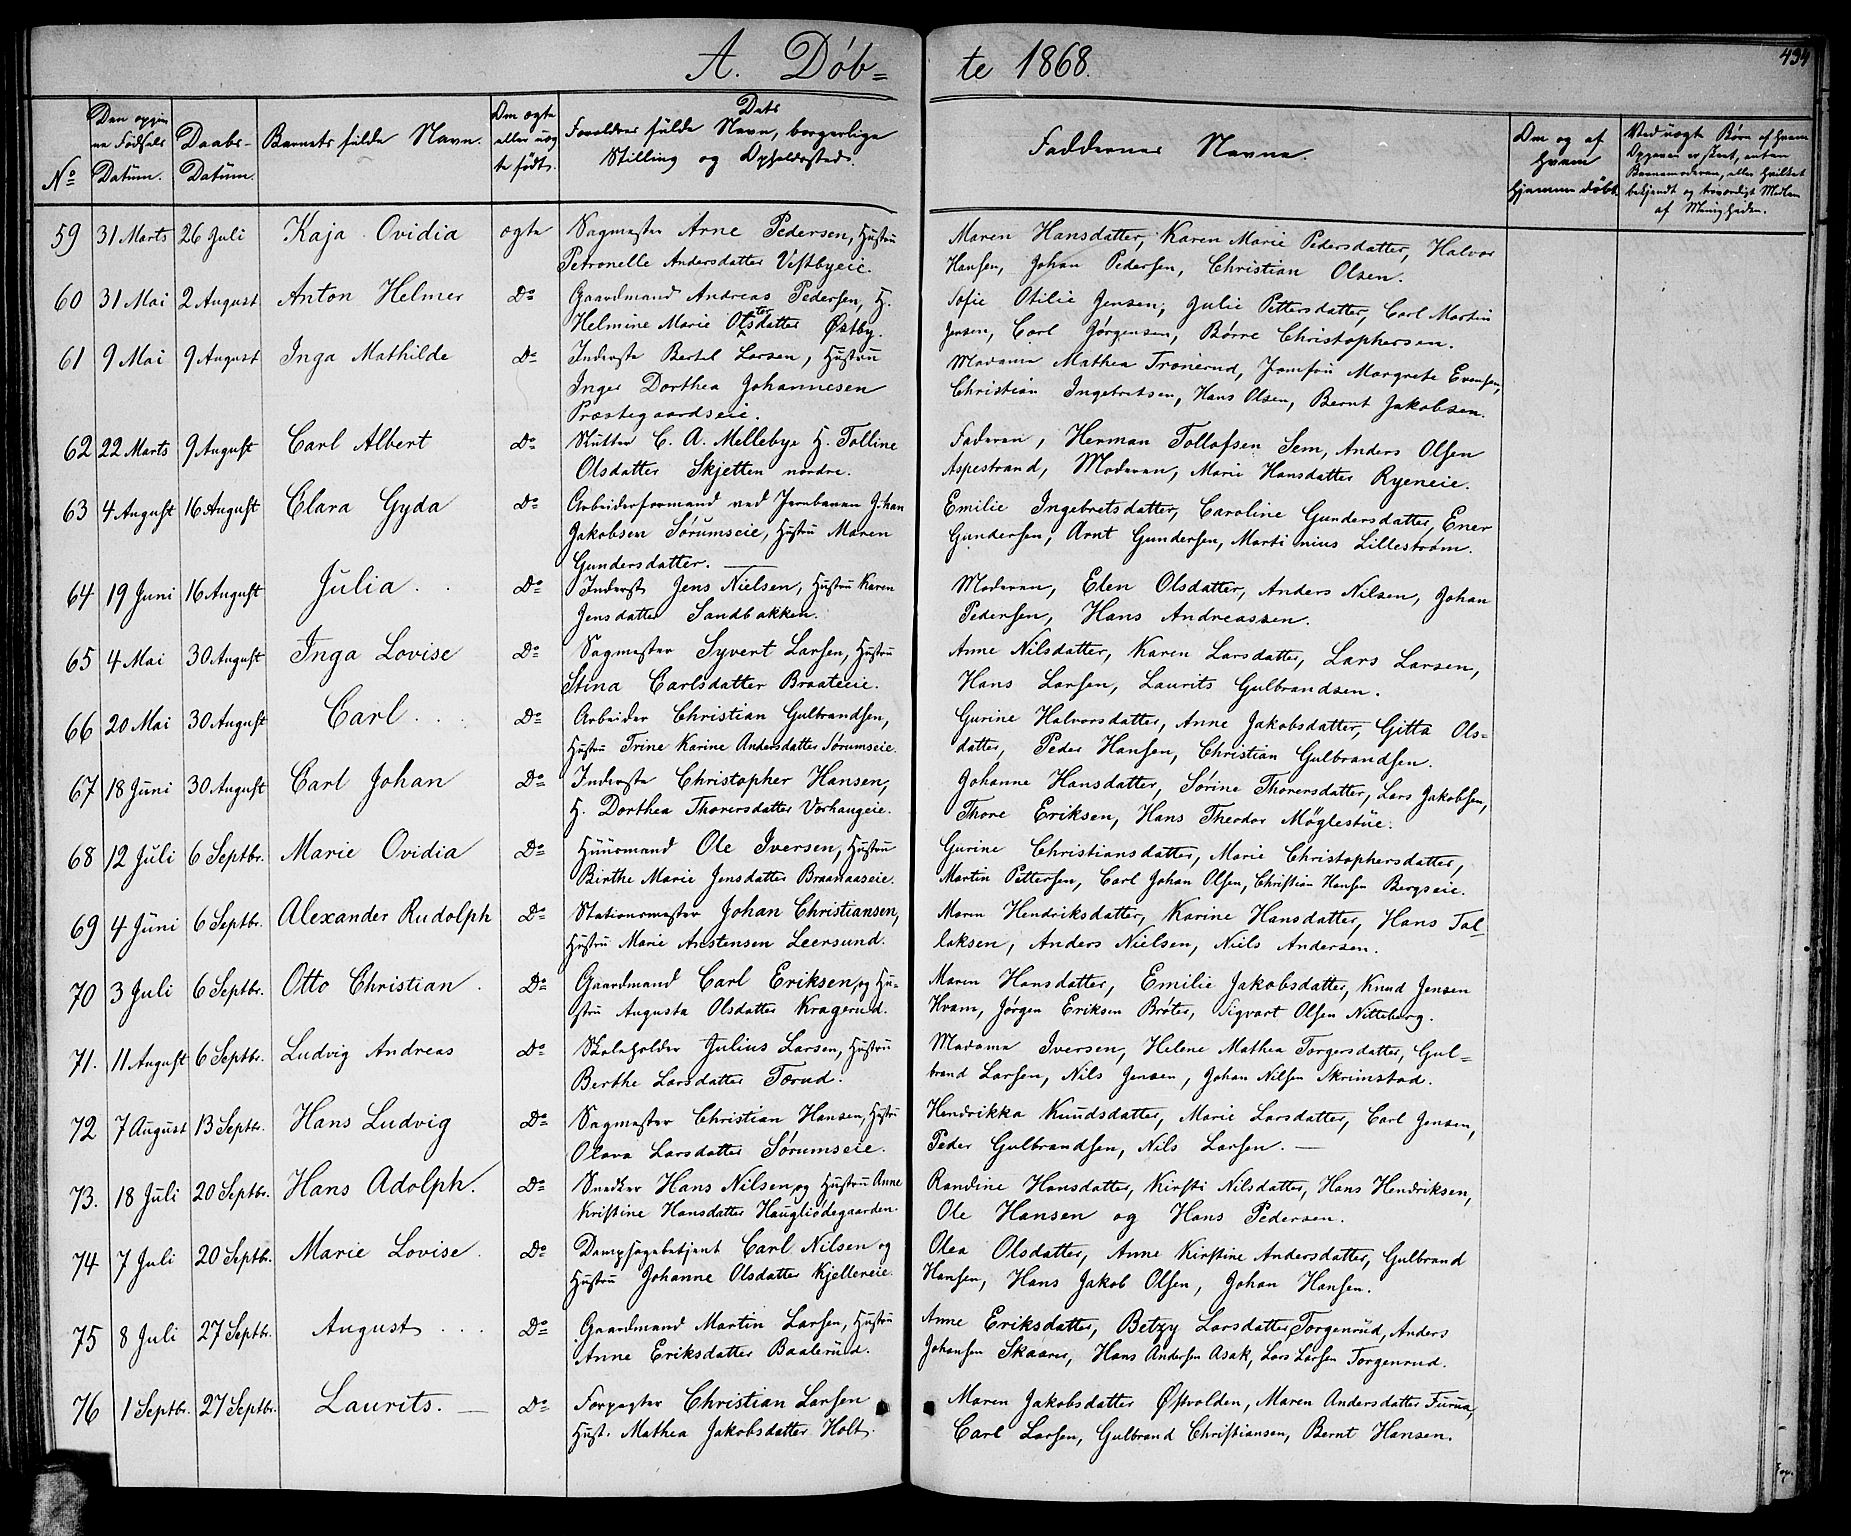 A. Døb= te 1868.
434
No
Den opgiv
ne Fødsels
Datum.
Daabs-
Datum.
Barnets fulde Navn.
Om ægte
eller uæg
te født.
Dets
Forældres fulde Navn, borgerlige
Stilling og Opholdssted.
Faddernes Navne.
Om og af
hvem
hjemmedøbt.
Ved uægte Børn af hvem
Opgaven er skeet, enten
Barnemoderen, eller hvilket
bekjendt og troværdigt Medlem
af Menigheden.
59 31 Marts 26 Juli Kaja Ovidia ægte Sagmester Arne Pedersen, Hustru Maren Hansdatter, Karen Marie Pedersdatter, Halvor
Petronelle Andersdatter Vestbyeie. Hansen, Johan Pedersen, Christian Olsen.
60 31 Mai 2 August Anton Helmer Do Gaardmand Andreas Pedersen, H. Sofie Otilie Jensen, Julie Pettersdatter, Carl Martin
Helmine Marie Olsdatter Østby. Jensen, Carl Jørgensen, Børre Christophersen.
61 9 Mai 9 August Inga Mathilde Do Inderste Bertel Larsen, Hustru Madame Mathea Tronerud, Jomfru Margrete Evensen,
Inger Dorthea Johannesen Christian Ingebretsen, Hans Olsen, Bernt Jakobsen.
Præstegaardseie.
62 22 Marts 9 August Carl Albert Do C. A. Mellebye H. Tolline Faderen, Herman Tollofsen Sem, Anders Olsen
Olsdatter Skjetten nordre. Aspestrand, Moderen, Marie Hansdatter Ryeneie.
63 4 August 16 August Clara Gyda Do Arbeiderformand ved Jernbanen Johan Emilie Ingebretsdatter, Caroline Gundersdatter, Ener
Jakobsen Sørumseie, Hustru Maren Gundersen, Arnt Gundersen, Martinius Lillestrøm.
Gundersdatter.
64 19 Juni 16 August Julia Do Inderst Jens Nielsen, Hustru Karen Moderen, Elen Olsdatter, Anders Nilsen, Johan
Jensdatter Sandbakken. Pedersen, Hans Andreassen.
65 4 Mai 30 August Inga Lovise Do Sagmester Syvert Larsen, Hustru Anne Nilsdatter, Karen Larsdatter, Lars Larsen,
Stina Carlsdatter Braateeie. Hans Larsen, Laurits Gulbrandsen.
66 20 Mai 30 August Carl Do Arbeider Christian Gulbrandsen, Gurine Halvorsdatter, Anne Jakobsdatter, Gitta Ols=
Hustru Trine Karine Andersdatter Sørumseie. datter, Peder Hansen, Christian Gulbrandsen.
67 18 Juni 30 August Carl Johan Do Inderste Christopher Hansen, Johanne Hansdatter, Sørine Thorersdatter, Lars Jakobsen,
H. Dorthea Thorersdatter Vorhaugeie. Thore Eriksen, Hans Theodor Møglestue.
68 12 Juli 6 Septbr. Marie Ovidia Do Huusmand Ole Iversen, Hustru Gurine Christiansdatter, Marie Christophersdatter,
Birthe Marie Jensdatter Braanaaseie. Martin Pettersen, Carl Johan Olsen, Christian Hansen Bergseie.
69 4 Juni 6 Septbr. Alexander Rudolph Do Stationsmester Johan Christiansen, Maren Hendriksdatter, Karine Hansdatter, Hans Tol=
Hustru Marie Anstensen Leersund. laksen, Anders Nielsen, Niels Andersen.
70 3 Juli 6 Septbr. Otto Christian Do Gaardmand Carl Eriksen, og Hu= Maren Hansdatter, Emilie Jakobsdatter, Knud Jensen
stru Augusta Olsdatter Kragerud. Hvam, Jørgen Eriksen Brøter, Sigvart Olsen Nitteberg.
71. 11 August 6 Septbr. Ludvig Andreas Do Skoleholder Julius Larsen, Hustru Madame Iversen, Helene Mathea Torgersdatter, Gul=
Berthe Larsdatter Torud. brand Larsen, Nils Jensen, Johan Nilsen Skrimstad.
72 7 August 13 Septbr. Hans Ludvig Do Sagmester Christian Hansen, Hustru Hendrikka Knudsdatter, Marie Larsdatter, Carl Jensen,
Olava Larsdatter Sørumseie. Peder Gulbrandsen, Nils Larsen.
73. 18 Juli 20 Septbr. Hans Adolph. Do Snedker Hans Nilsen, og Hustru Anne Randine Hansdatter, Kirsti Nilsdatter, Hans Hendriksen,
Kristine Hansdatter Haugliødegaarden. Ole Hansen og Hans Pedersen.
74 7 Juli 20 Septbr. Marie Lovise Do Dampsagbetjent Carl Nilsen og Olea Olsdatter, Anne Kirstine Andersdatter, Gulbrand
Hustru Johanne Olsdatter Kjellereie. Hansen, Hans Jakob Olsen, Johan Hansen.
75 8 Juli 27 Septbr. August Do Gaardmand Martin Larsen, Hustru Anne Eriksdatter, Betzy Larsdatter Torgenrud, Anders
Anne Eriksdatter Baalerud. Johansen Skaarer, Hans Andersen Asak, Lars Larsen Torgenrud.
76 1 Septbr. 27 Septbr. Laurits. Do Forpagter Christian Larsen Maren Jakobsdatter Østvolden, Maren Andersdatter Furua,
Hust. Mathea Jakobsdatter Holt. Carl Larsen, Gulbrand Christiansen, Bernt Hansen.